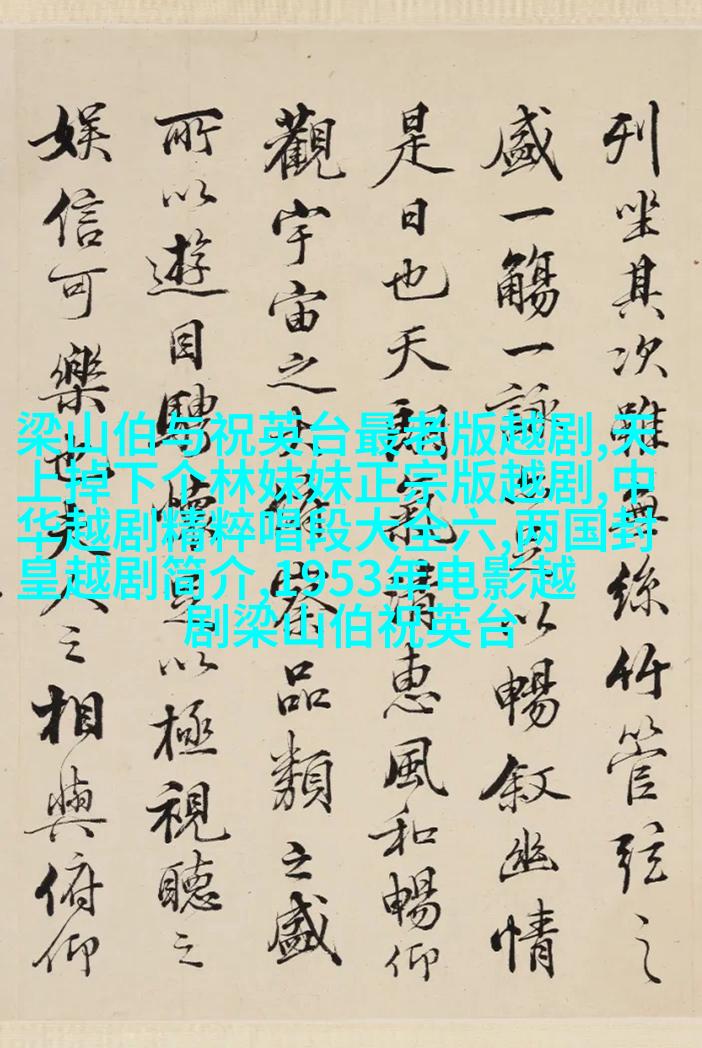 列坐其次雖無絲竹管弦之
盛一觴一詠亦足以暢叙幽情
是日也天朗氣清惠風和暢仰
觀宇宙之大俯察品類之盛
所以遊目騁懷足以極視聽之
娱信可樂也夫人之相與俯仰
梁山伯与祝英台最老版越剧,天
上掉下个林妹妹正宗版越剧,中
华越剧精粹唱段大全六,两国封
皇越剧简介,1953年电影越
剧梁山伯祝英台